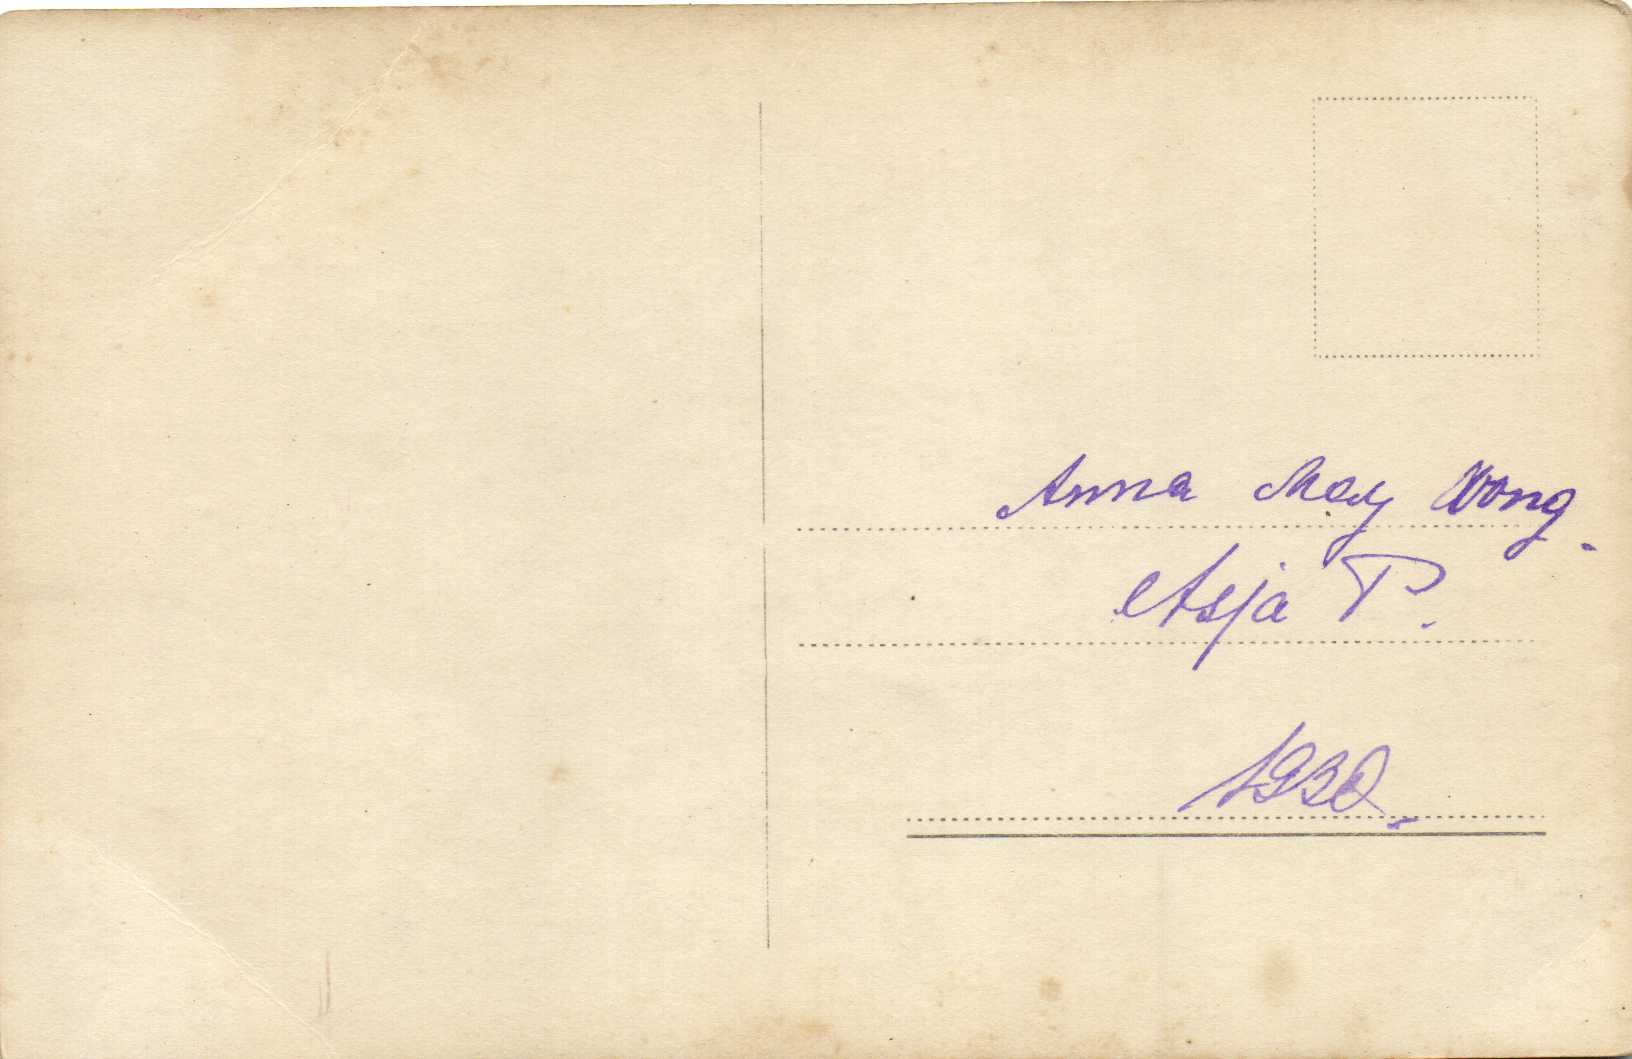 Anna May Wong.
Asja P.
1930.